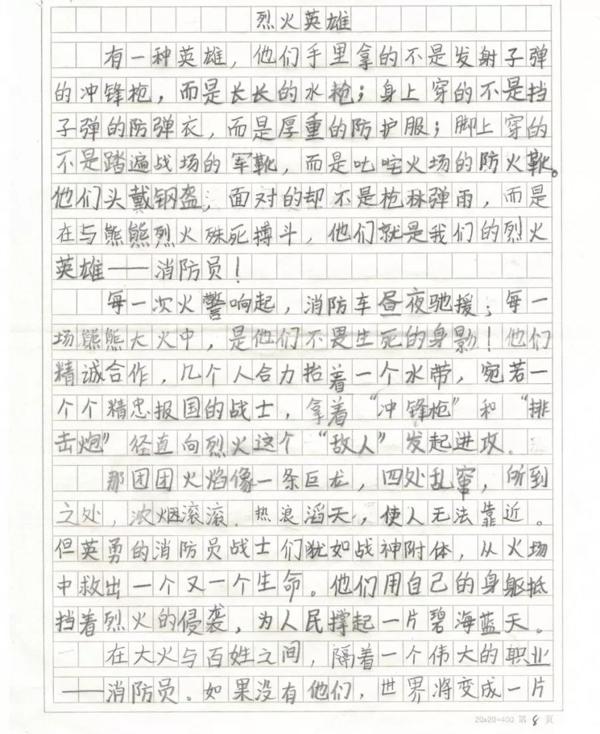 烈火英雄
有一种英雄，他们手里拿的不是发射子弹
的冲锋枪，而是长长的水枪；身上穿的不是挡
子弹的防弹衣，而是厚重的防护服；脚上穿的
不是踏遍战场的军靴，而是叱咤火场的防火靴。
他们头戴钢盔，面对的却不是枪林弹雨，而是
在与熊熊烈火殊死搏斗，他们就是我们的烈火
英雄——消防员！
每一次火警响起，消防车昼夜驰援；每一
场熊熊大火中，是他们不畏生死的身影！他们
精诚合作，几个人合力抬着一个水带，宛若一
个个精忠报国的战士，拿着“冲锋枪”和“排
击炮”径直向烈火这个“敌人”发起进攻。
那团团火焰像一条巨龙，四处乱窜，所到
之处，浓烟滚滚，热浪滔天，使人无法靠近。
但英勇的消防员战士们犹如战神附体，从火场
中救出一个又一个生命。他们用自己的身躯抵
挡着烈火的侵袭，为人民撑起一片碧海蓝天。
在大火与百姓之间，隔着一个伟大的职业
——消防员。如果没有他们，世界将变成一片
20x20=400 第 8 页